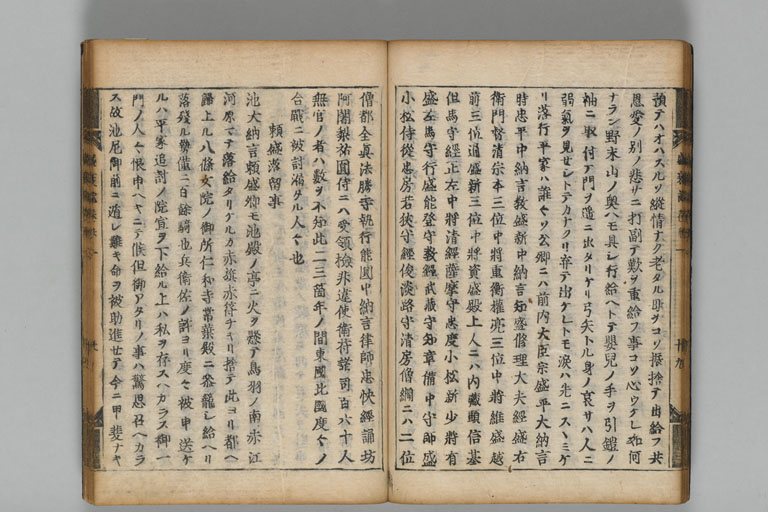 預テハオハスルソ縦情ナク老タル
恩愛ノ別ノ悲サニ打副テ歎ヲ重給フ事コソ心ウケレ如何
ナラン野末山ノ奥ヘモ具シ行給ヘトテ嬰児ノ手ヲ引鎧ノ
袖ニ取付テ門ヲ遣ニ出タリケリ弓矢トル身ノ哀サハ人ニ
弱気ヲ見セシトテカナクリ弃テ出ケレトモ涙ハ先ニスヽミケ
リ落行平家ハ誰々ソ公卿ニハ前内大臣宗盛平大納言
時忠平中納言教盛新中納言知盛修理大夫経盛右
衛門督清宗本三位中将重衡権亮三位中将維盛越
前三位通盛新三位中将資盛殿上人ニハ内蔵頭信基
但馬守経正左中将清経薩摩守忠度小松新少将有
盛左馬守行盛能登守教経武蔵守知章備中守師盛
小松侍従忠房若狭守経俊淡路守清房僧綱ニハ二位
僧都全真法勝寺執行能円中納言律師忠快経誦坊
阿闍梨祐円侍ニハ受領検非違使衛府諸司百六十人
無官ノ者ハ数ヲ不知此二三箇年ノ間東国北国度々ノ
合戦ニ被討漏タル人々也
頼盛落留事
池大納言頼盛卿モ池殿ノ亭ニ火ヲ懸テ鳥羽ノ南赤江
河原マテ落給タリケルカ赤旗赤符チキリ捨テ此ヨリ都ヘ
帰上ル八條女院ノ御所仁和寺常葉殿ニ参籠シ給ヘリ
落残ル勢僅二百余騎也兵衛佐ノ許ヨリ度々被申送ケ
ルハ平家追討ノ院宣ヲ下給ル上ハ私ヲ存スヘカラス御一
門ノ人々ヤ恨申ヘキニテ候但御アタリノ事ハ驚思召ヘカラ
ス故池尼御前ニ遁レ難キ命ヲ被助進セテ今ニ甲斐ナキ